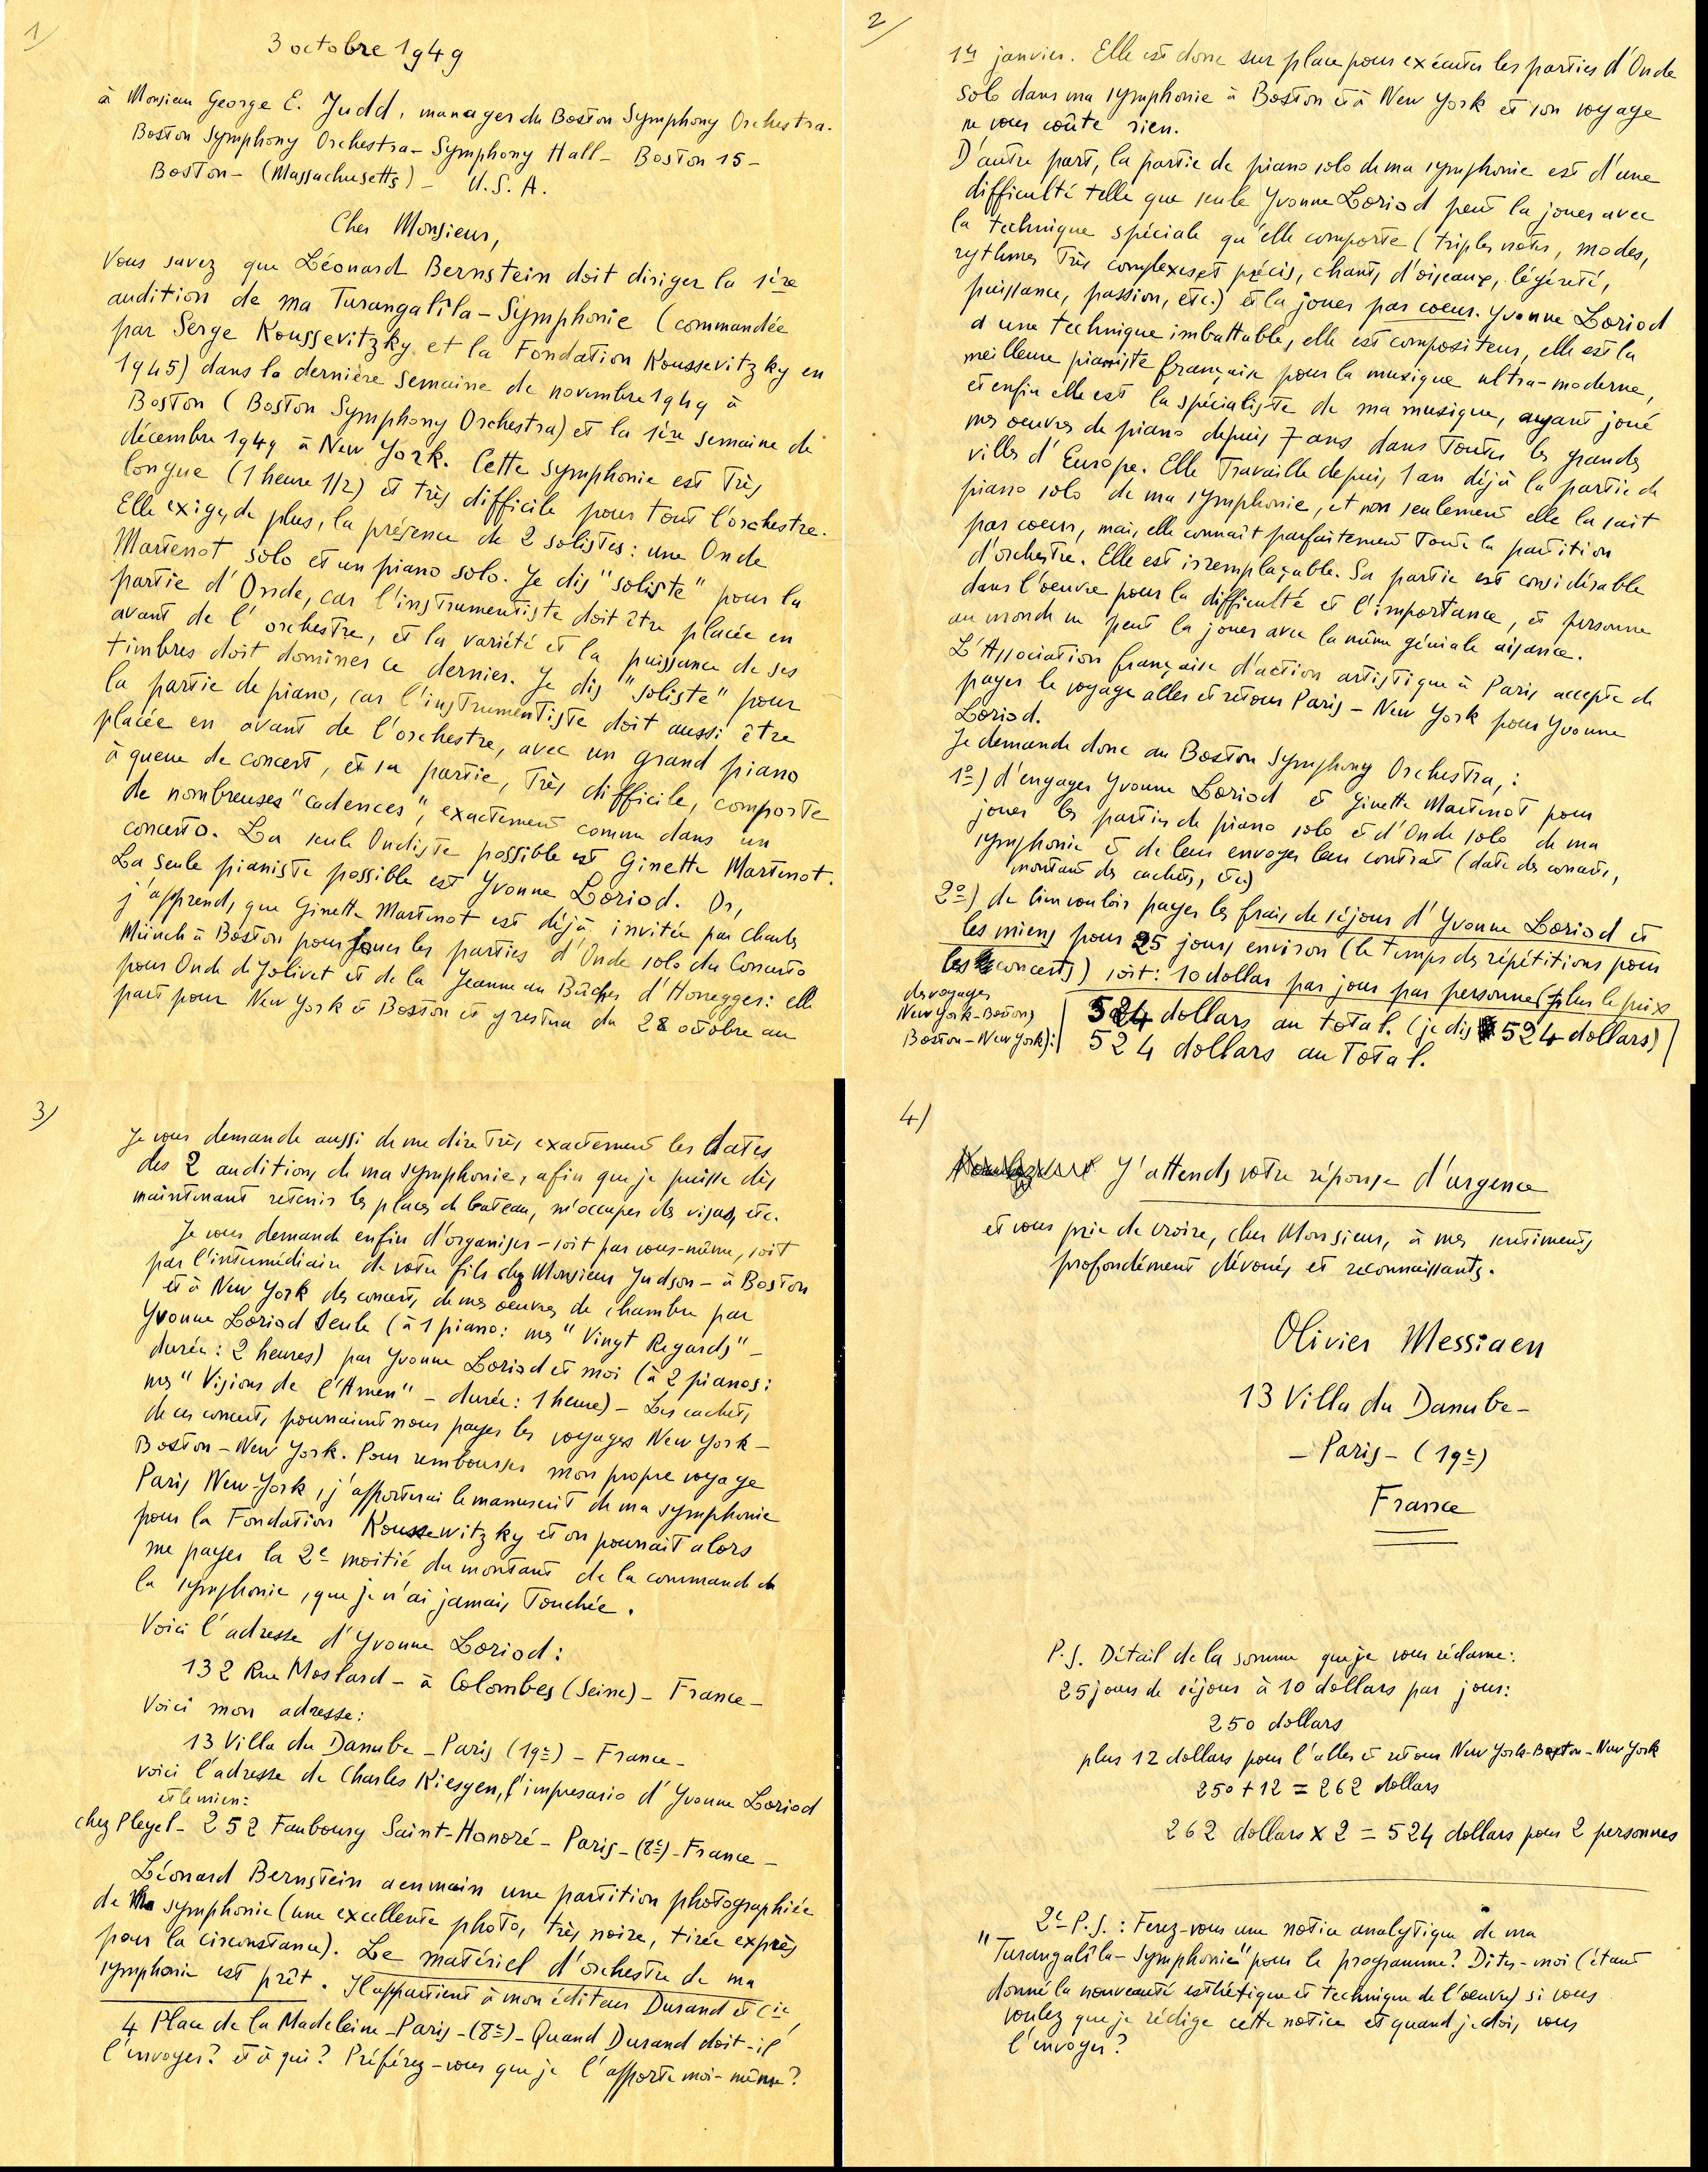 1/
3 octobre 1949
à Monsieur George E. Judd, manager du Boston Symphony Orchestra.
Boston Symphony Orchestra - Symphony Hall - Boston 15 -
Boston - (Massachusetts) - U.S.A.
Cher Monsieur,
Vous savez que Léonard Bernstein doit diriger la 1ère
audition de ma Turangalîla-Symphonie (commandée
par Serge Koussevitzky et la Fondation Koussevitzky en
1945) dans la dernière semaine de novembre 1949 à
Boston (Boston Symphony Orchestra) et la 1ère semaine de
décembre 1949 à New York. Cette symphonie est très
longue (1 heure 1/2) et très difficile pour tout l'orchestre.
Elle exige, de plus, la présence de 2 solistes: une Onde
Martenot solo et un piano solo. Je dis "soliste" pour la
partie d'Onde, car l'instrumentiste doit être placée en
avant de l'orchestre, et la variété et la puissance de ses
timbres doit dominer ce dernier. Je dis "soliste" pour
la partie de piano, car l'instrumentiste doit aussi être
placée en avant de l'orchestre, avec un grand piano
à queue de concert, et sa partie, très difficile, comporte
de nombreuses "cadences", exactement comme dans un
concerto. La seule Ondiste possible est Ginette Martenot.
La seule pianiste possible est Yvonne Loriod. Or,
j'apprends que Ginette Martenot est déjà invitée par Charles
Münch à Boston pour jouer les parties d'Onde solo du Concerto
pour Onde de Jolivet et de la Jeanne au Bûcher d'Honegger: elle
part pour New York et Boston et y restera du 28 octobre au
2/
1er janvier. Elle est donc sur place pour exécuter les parties d'Onde
solo dans ma symphonie à Boston et à New York et son voyage
ne vous coûte rien.
D'autre part, la partie de piano solo de ma symphonie est d'une
difficulté telle que seule Yvonne Loriod peut la jouer avec
la technique spéciale qu'elle comporte (triples notes, modes,
rythmes très complexes et précis, chants d'oiseaux, légèreté,
puissance, passion, etc.) et la jouer par coeur. Yvonne Loriod
a une technique imbattable, elle est compositeur, elle est la
meilleure pianiste française pour la musique ultra-moderne,
et enfin elle est la spécialiste de ma musique, ayant joué
mes oeuvres de piano depuis 7 ans dans toutes les grandes
villes d'Europe. Elle travaille depuis 1 an déjà la partie de
piano solo de ma symphonie, et non seulement elle la sait
par coeur, mais elle connaît parfaitement toute la partition
d'orchestre. Elle est irremplaçable. Sa partie est considérable
dans l'oeuvre pour la difficulté et l'importance, et personne
au monde ne peut la jouer avec la même géniale aisance.
L'Association française d'action artistique à Paris accepte de
payer le voyage aller et retour Paris - New York pour Yvonne
Loriod.
Je demande donc au Boston Symphony Orchestra,:
1º) d'engager Yvonne Loriod et Ginette Martenot pour
jouer les parties de piano solo et d'Onde solo de ma
symphonie et de leur envoyer leur contrat (date des concerts,
montant des cachets, etc.)
2º) de bien vouloir payer les frais de séjour d'Yvonne Loriod et
les miens pour 25 jours environ (le temps des répétitions pour
les concerts) soit: 10 dollar par jour par personne (plus le prix
des voyages
New York-Boston,
Boston-New York):
524 dollars au total. (je dis 524 dollars)
524 dollars au total.
3/
Je vous demande aussi de me dire très exactement les dates
des 2 auditions de ma symphonie, afin que je puisse dès
maintenant retenir les places de bateau, m'occuper des visas, etc.
Je vous demande enfin d'organiser - soit par vous-même, soit
par l'intermédiaire de votre fils chez Monsieur Judson - à Boston
et à New York des concerts de mes oeuvres de chambre par
Yvonne Loriod seule (à 1 piano: mes "Vingt Regards" -
durée: 2 heures) par Yvonne Loriod et moi (à 2 pianos:
mes "Visions de l'Amen" - durée: 1 heure) - Les cachets
de ces concerts pourraient nous payer les voyages New York -
Boston - New York. Pour rembourser mon propre voyage
Paris New-York, j'apporterai le manuscrit de ma symphonie
pour la Fondation Koussewitzky et on pourrait alors
me payer la 2e moitié du montant de la commande de
la symphonie, que je n'ai jamais touchée.
Voici l'adresse d'Yvonne Loriod:
132 Rue Moslard - à Colombes (Seine) - France -
Voici mon adresse:
13 Villa du Danube - Paris (19e) - France -
voici l'adresse de Charles Kiesgen, l'impresario d'Yvonne Loriod
et le mien:
chez Pleyel - 252 Faubourg Saint-Honoré - Paris - (8e) - France -
Léonard Bernstein a en main une partition photographiée
de ma symphonie (une excellente photo, très noire, tirée exprès
pour la circonstance). Le matériel d'orchestre de ma
symphonie est prêt. Il appartient à mon éditeur Durand et Cie,
4 Place de la Madeleine - Paris - (8e) - Quand Durand doit-il
l'envoyer? et à qui? Préférez-vous que je l'apporte moi-même?
4/
J'attends votre réponse d'urgence
et vous prie de croire, cher Monsieur, à mes sentiments
profondément dévoués et reconnaissants.
Olivier Messiaen
13 Villa du Danube -
- Paris - (19e)
France
P.S. Détail de la somme que je vous réclame:
25 jours de séjour à 10 dollars par jour:
250 dollars
plus 12 dollars pour l'aller et retour New York-Boston-New York
250 + 12 = 262 dollars
262 dollars x 2 = 524 dollars pour 2 personnes
2e P.S.: Ferez-vous une notice analytique de ma
"Turangalîla-Symphonie" pour le programme? Dites-moi (étant
donné la nouveauté esthétique et technique de l'oeuvre) si vous
voulez que je rédige cette notice et quand je dois vous
l'envoyer?